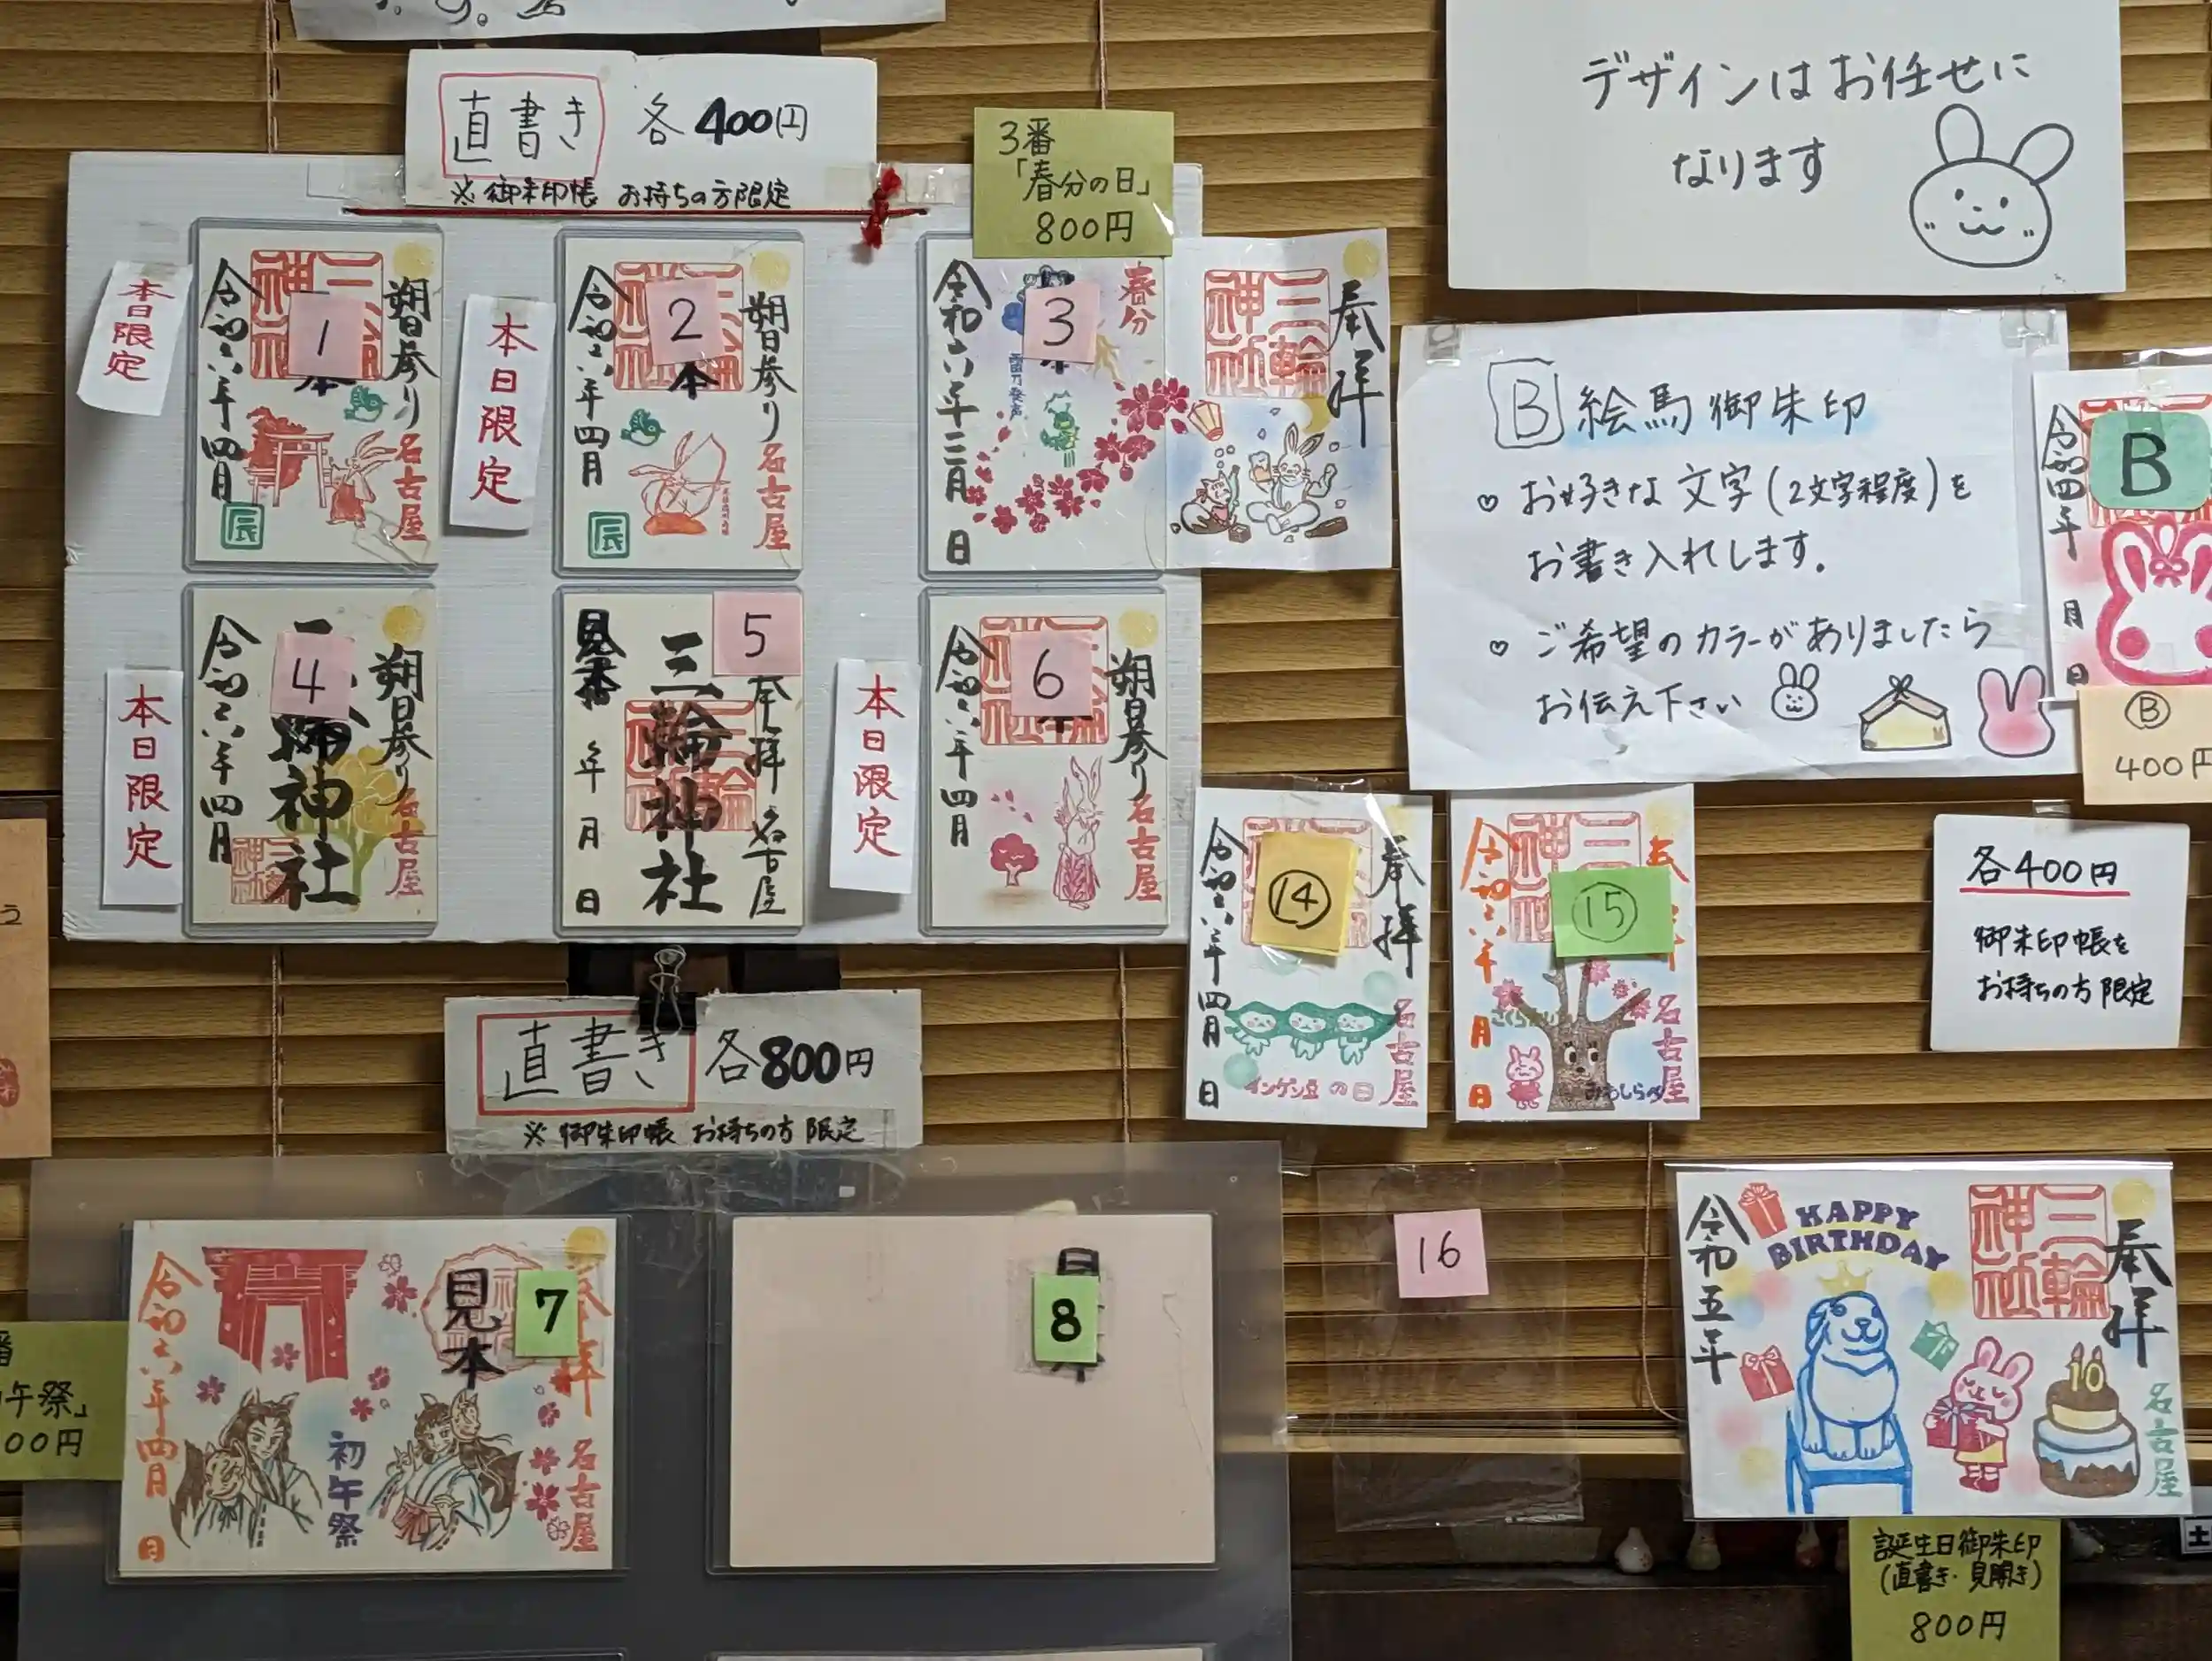 直書き 各400円
※御朱印帳 お持ちの方限定
3番
「春分の日」
800円
デザインはお任せに
なります
本日限定
1
朔日参り
名古屋
令和六年四月
辰
本日限定
2
朔日参り
名古屋
令和六年四月
辰
3
春分
雷乃発声
令和六年三月 日
奉拝
三輪神社
B 絵馬御朱印
♡ お好きな文字(2文字程度)を
お書き入れします。
♡ ご希望のカラーがありましたら
お伝え下さい
B
令和四年 月 日
Ⓑ
400円
本日限定
4
朔日参り
名古屋
神社
令和六年四月
5
奉拝 名古屋
三輪神社
見本 年 月 日
本日限定
6
朔日参り
名古屋
令和六年四月
⑭
奉拝
名古屋
インゲン豆の日
令和六年四月 日
⑮
名古屋
令和六年 月 日
各400円
御朱印帳を
お持ちの方限定
直書き 各800円
※御朱印帳 お持ちの方限定
7
見本
名古屋
初午祭
令和六年四月 日
8
16
午祭」
00円
HAPPY
BIRTHDAY
三輪神社
奉拝
名古屋
令和五年
10
誕生日御朱印
(直書き・見開き)
800円